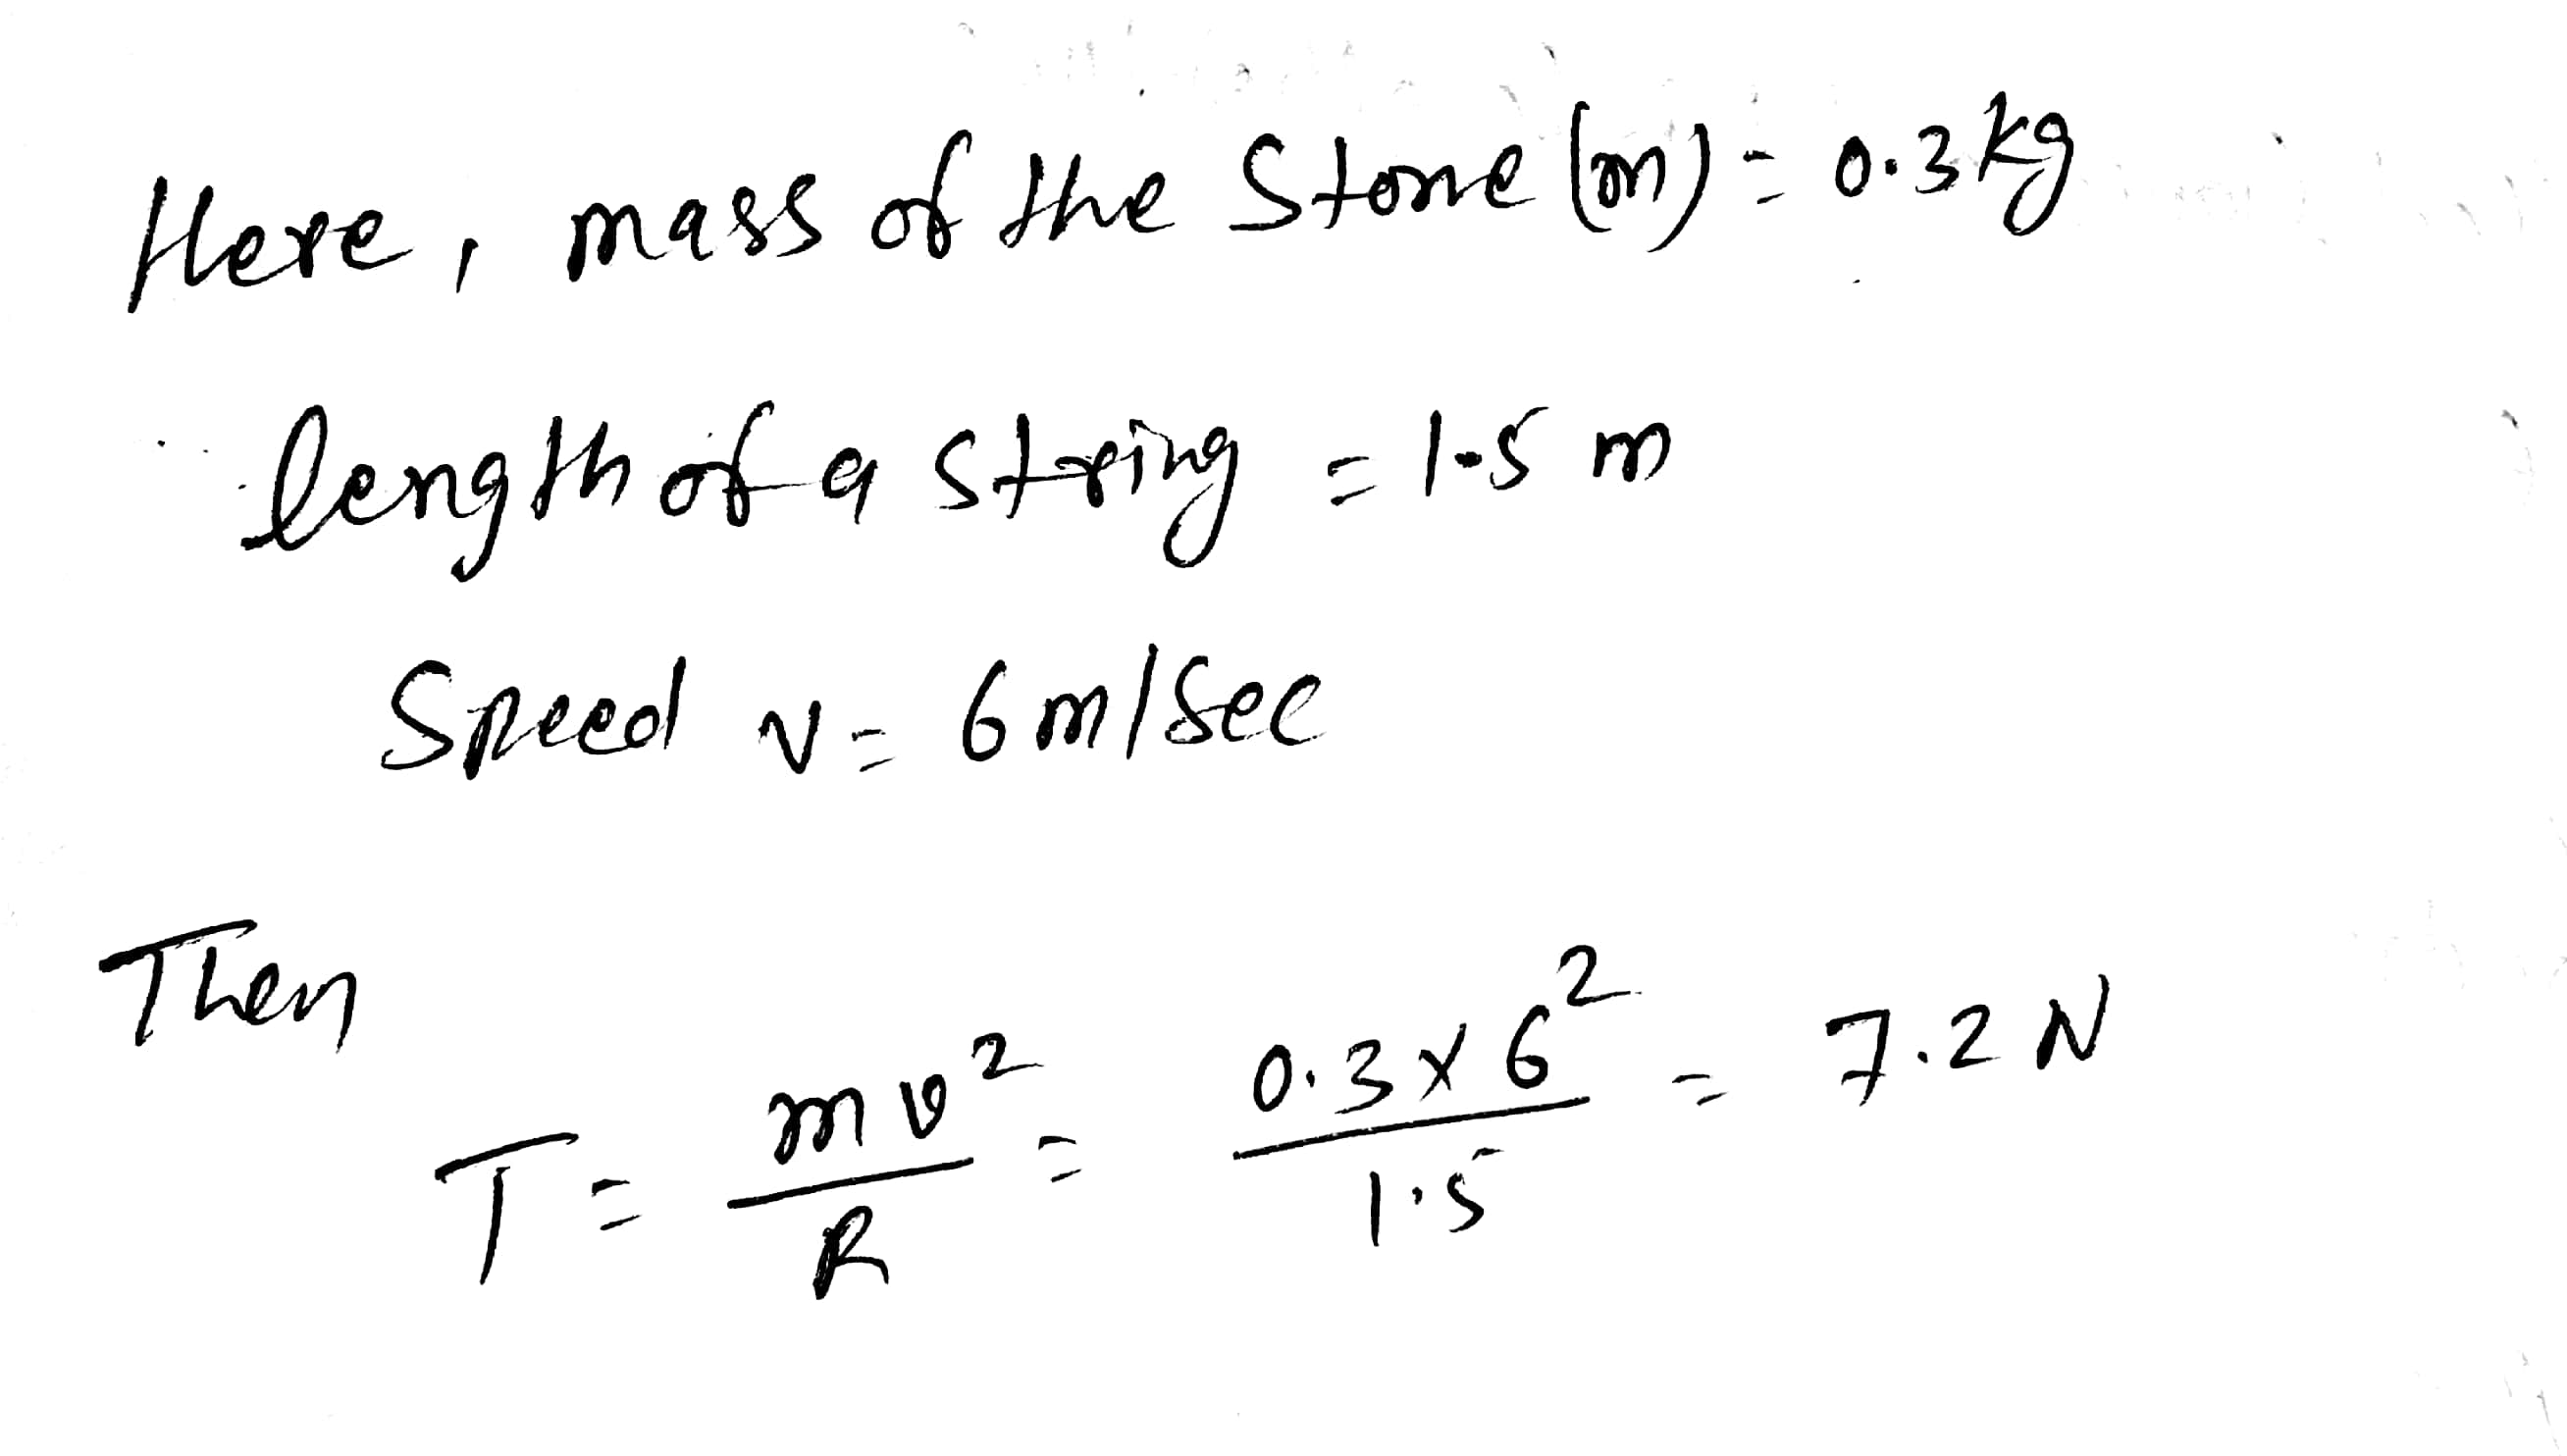 Here, mass of the Stone (m) = 0.3 kg
length of a string = 1.5 m
Speed v = 6 m/sec
Then
T = mv²/R = 0.3 × 6²/1.5 = 7.2 N